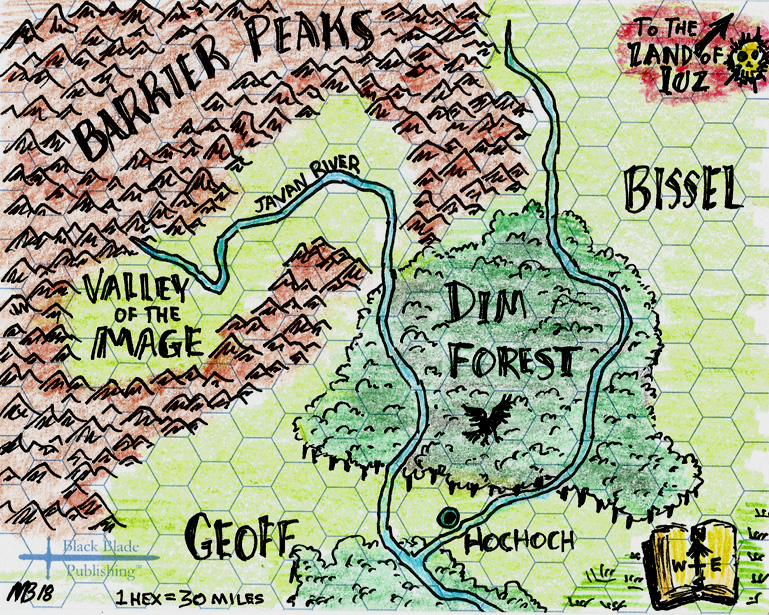 BARRIER PEAKS
TO THE
LAND OF
IUZ
JAVAN RIVER
BISSEL
VALLEY
OF THE
MAGE
DIM
FOREST
GEOFF
HOCHOCH
Black Blade
Publishing™
N
W E
S
MB 18
1 HEX = 30 MILES